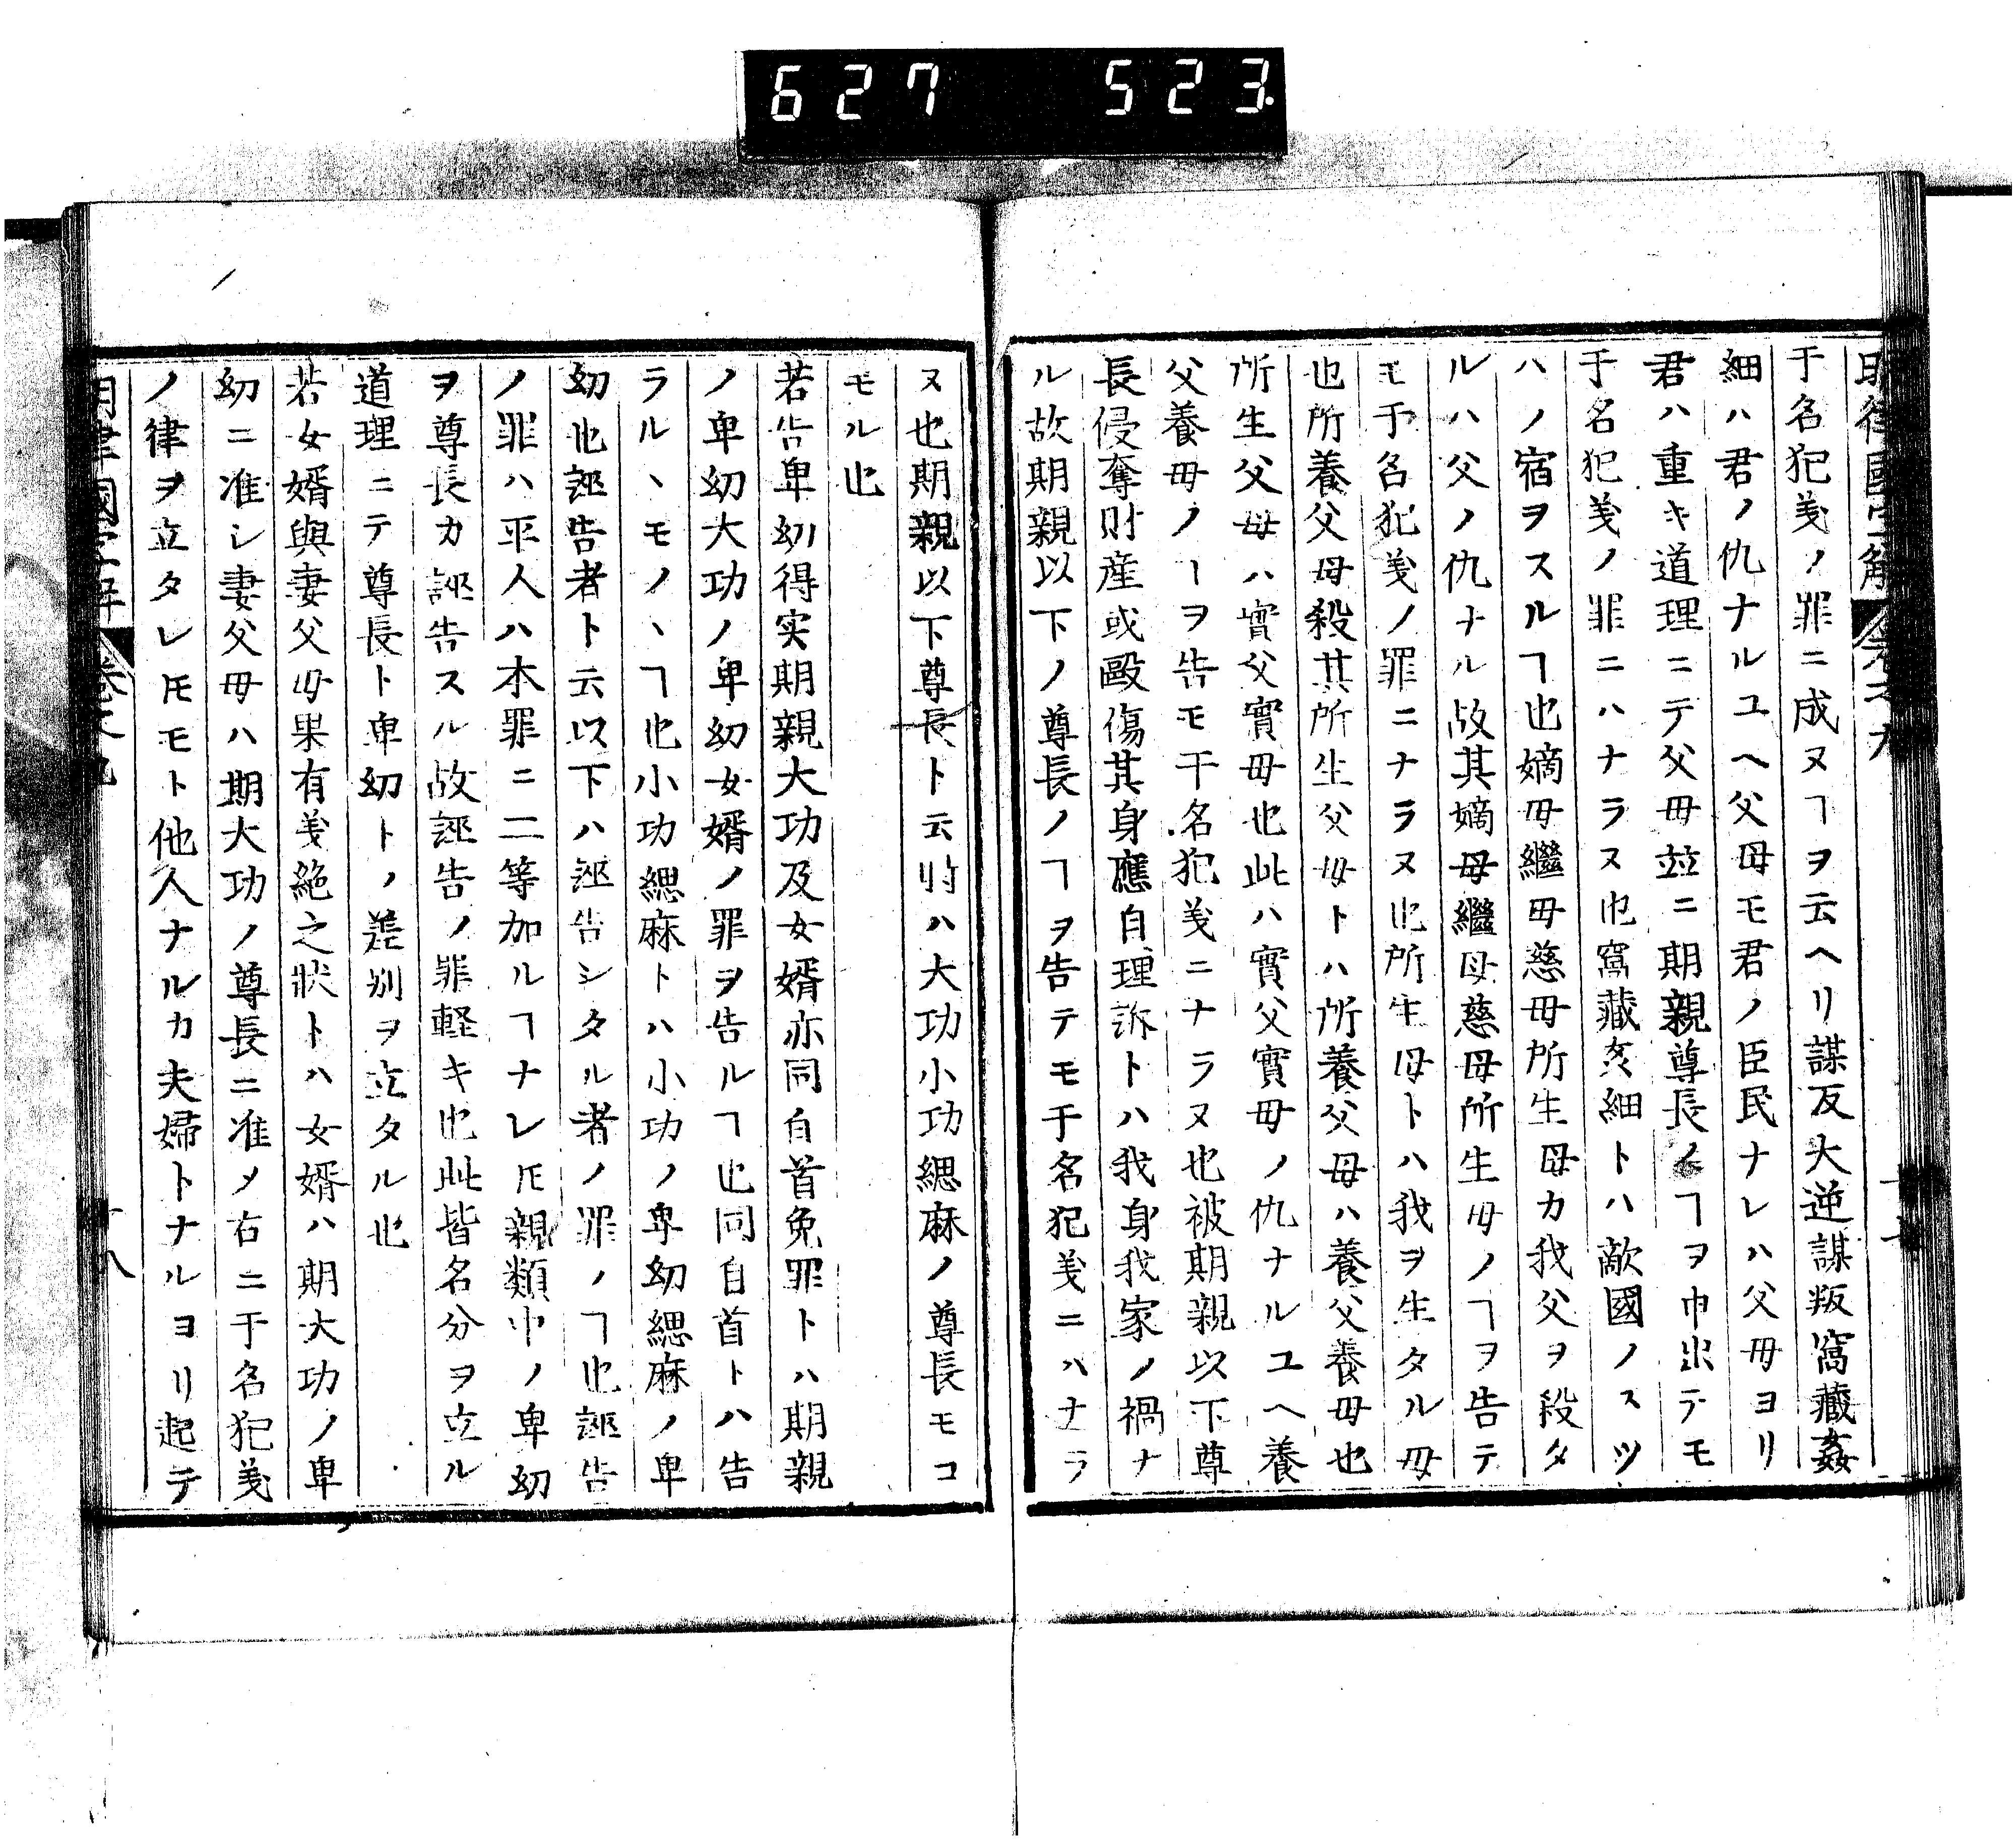 627 523
明律國字解 卷之九 十七
于名犯義ノ罪ニ成ヌヿヲ云ヘリ謀反大逆謀叛窩藏姦
細ハ君ノ仇ナルユヘ父母モ君ノ臣民ナレハ父母ヨリ
君ハ重キ道理ニテ父母並ニ期親尊長ノヿヲ申出テモ
于名犯義ノ罪ニハナラヌ也窩藏姦細トハ敵國ノスツ
ハノ宿ヲスルヿ也嫡母繼母慈母所生母カ我父ヲ殺タ
ルハ父ノ仇ナル故其嫡母繼母慈母所生母ノヿヲ告テ
モ于名犯義ノ罪ニナラヌ也所生母トハ我ヲ生タル母
也所養父母殺其所生父母トハ所養父母ハ養父養母也
所生父母ハ實父實母也此ハ實父實母ノ仇ナルユヘ養
父養母ノヿヲ告モ干名犯義ニナラヌ也被期親以下尊
長侵奪財産或毆傷其身應自理訴トハ我身我家ノ禍ナ
ル故期親以下ノ尊長ノヿヲ告テモ于名犯義ニハナラ
ヌ也期親以下尊長ト云時ハ大功小功緦麻ノ尊長モコ
モル也
若告卑幼得実期親大功及女婿亦同自首免罪トハ期親
ノ卑幼大功ノ卑幼女婿ノ罪ヲ告ルヿ也同自首トハ告
ラルヽモノヽヿ也小功緦麻トハ小功ノ卑幼緦麻ノ卑
幼也誣告者ト云以下ハ誣告シタル者ノ罪ノヿ也誣告
ノ罪ハ平人ハ本罪ニ二等加ルヿナレ𪜈親類中ノ卑幼
ヲ尊長カ誣告スル故誣告ノ罪軽キ也此皆名分ヲ立ル
道理ニテ尊長ト卑幼トノ差別ヲ立タル也
若女婿與妻父母果有義絶之狀トハ女婿ハ期大功ノ卑
幼ニ准シ妻父母ハ期大功ノ尊長ニ准メ右ニ于名犯義
ノ律ヲ立タレ𪜈モト他人ナルカ夫婦トナルヨリ起テ
明律國字解 卷之九 十八